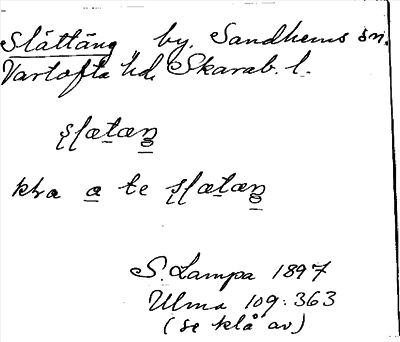 Slättäng by, Sandhems sn.
Vartofta hd, Skarab. l.
ʂɭætæŋ
kra a te ʂɭætæŋ
S. Lampa 1897
Ulma 109:363
(se klå av)